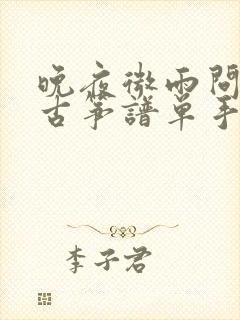 晚夜微雨問
古筝譜单手
李子君